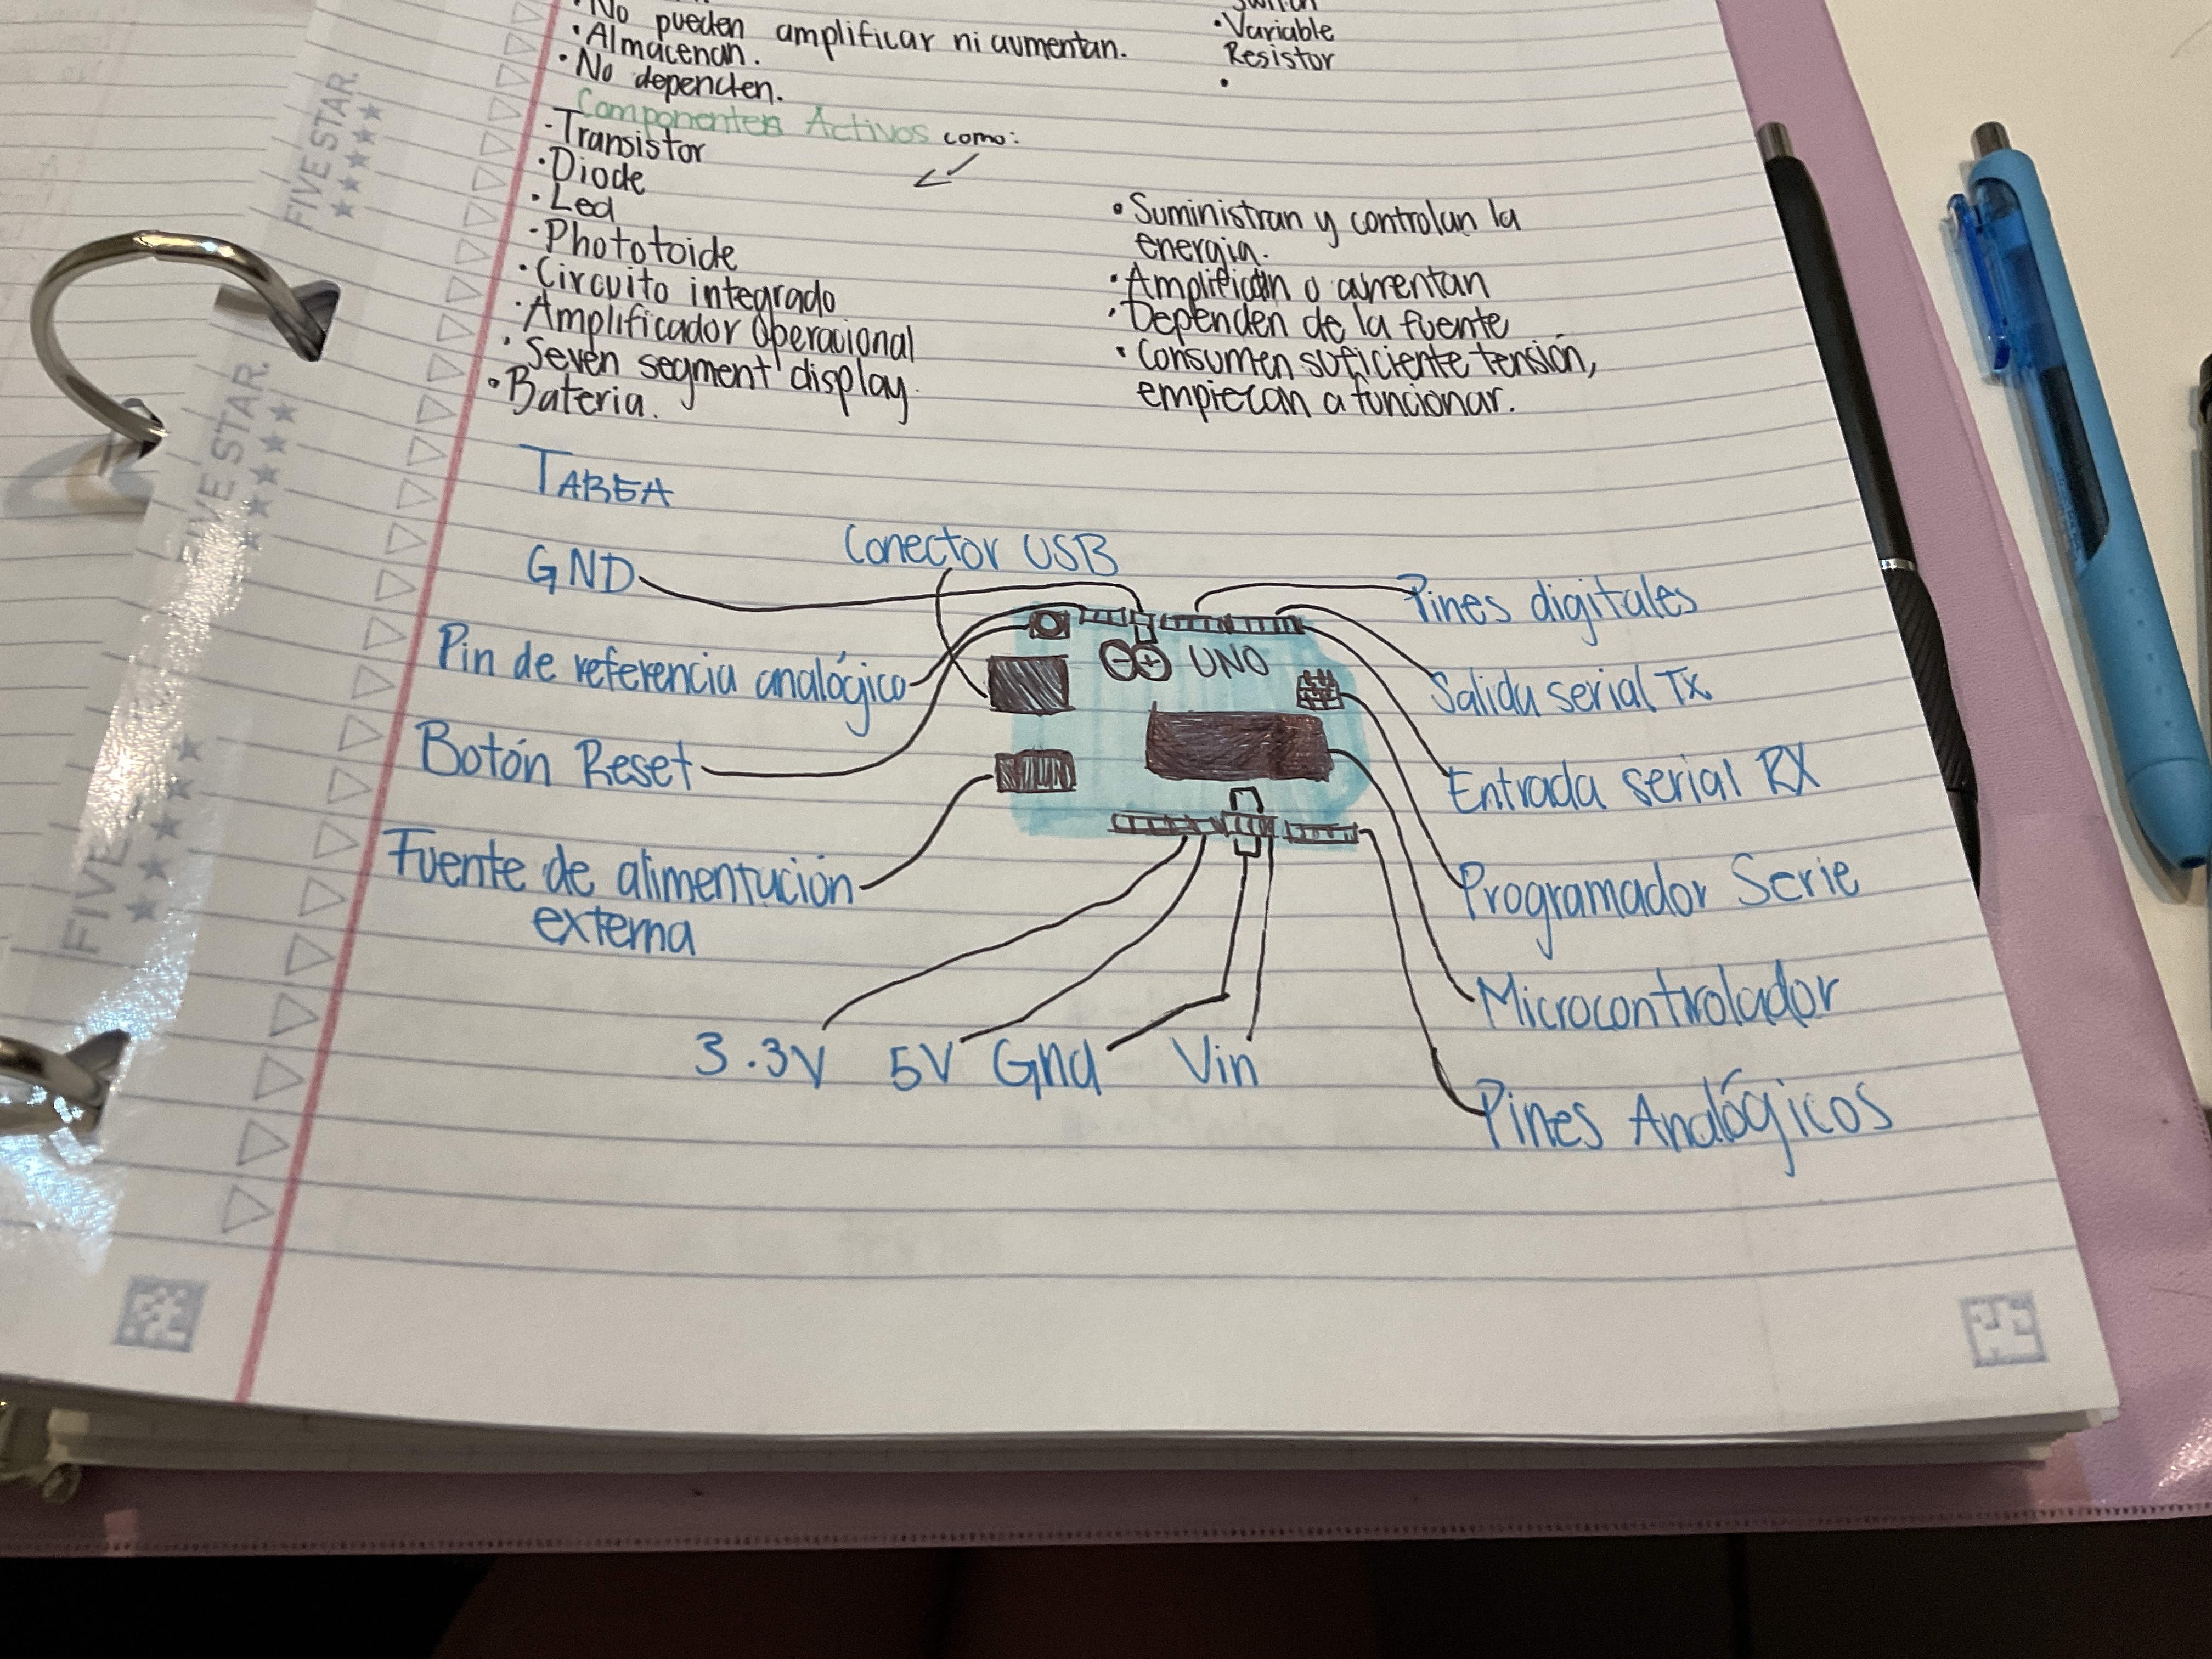 No pueden amplificar ni aumentan.
• Almacenan.
• No dependen.
Switch
• Variable
Resistor
•
Componentes Activos como:
- Transistor
• Diode
• Led
- Phototoide
• Circuito integrado
• Amplificador Operacional
• Seven segment display.
• Bateria.
• Suministran y controlan la
energia.
• Amplifican o aumentan
• Dependen de la fuente
• Consumen suficiente tensión,
empiezan a funcionar.
TAREA
Conector USB
GND
Pin de referencia analógico
Botón Reset
Fuente de alimentación
externa
UNO
Pines digitales
Salida serial Tx
Entrada serial RX
Programador Serie
Microcontrolador
Pines Analógicos
3.3V 5V Gnd Vin
FIVE STAR.
FIVE STAR.
FIVE